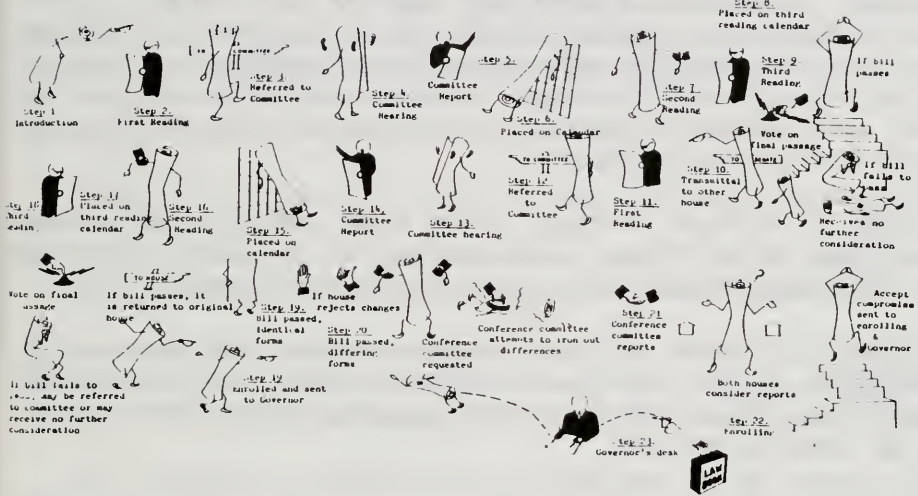 Step 1
Introduction
Step 2.
First Reading
TO COMMITTEE
Step 3
Referred to
Committee
Step 4.
Committee
Hearing
Committee
Report
Step 5.
Step 6.
Placed on Calendar
Step 7.
Second
Reading
Step 8.
Placed on third
reading calendar
Step 9.
Third
Reading
Vote on
final passage
If bill
passes
If bill
fails to
pass
Receives no
further
consideration
Step 10.
Transmittal
to other
house
TO SENATE
Step 11.
First
Reading
TO COMMITTEE
Step 12
Referred
to
Committee
Step 13.
Committee hearing
Step 14.
Committee
Report
Step 15.
Placed on
calendar
Step 16.
Second
Reading
Step 17
Placed on
third reading
calendar
Step 18
Third
Vote on final
TO HOUSE
If bill passes, it
is returned to original
house
If bill fails to
may be referred
to committee or may
receive no further
consideration
Step 19.
Bill passed,
Identical
forms
Step 19
Enrolled and sent
to Governor
If house
rejects changes
Step 20
Bill passed,
differing
forms
Conference
committee
requested
Conference committee
attempts to iron out
differences
Step 21
Conference
committee
reports
Both houses
consider reports
Accept
compromise
sent to
enrolling
&
Governor
Step 22.
Enrolling
Step 23.
Governor's desk
LAW
BOOK